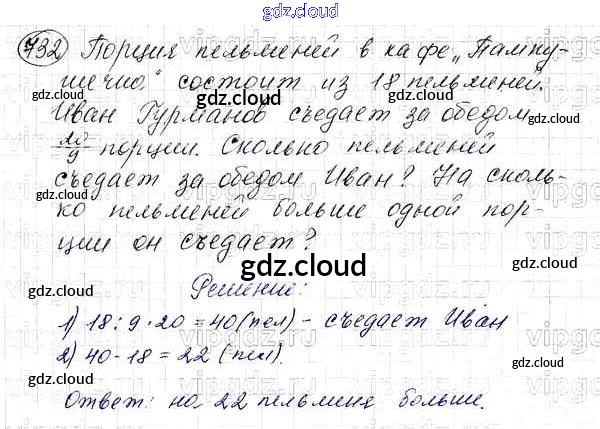 gdz.cloud
732 Порция пельменей в кафе „Пампу-
шечка" состоит из 18 пельменей.
gdz.cloud
Иван Гурманов съедает за обедом
20/9 порции. Сколько пельменей
gdz.cloud
съедает за обедом Иван? На сколь-
ко пельменей больше одной пор-
ции он съедает?
gdz.cloud
gdz.cloud
Решение:
gdz.cloud
1) 18 : 9 · 20 = 40 (пел) - съедает Иван
2) 40 - 18 = 22 (пел).
gdz.cloud
Ответ: на 22 пельменя больше.